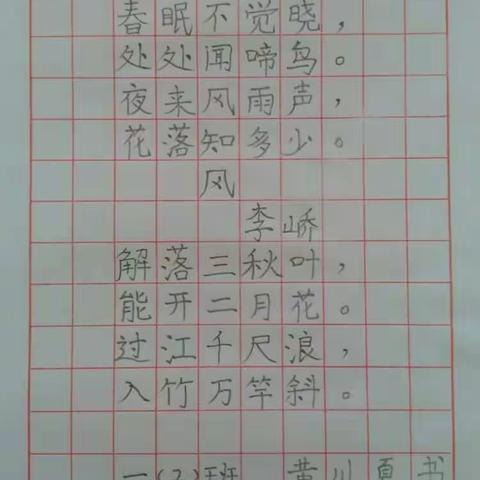 春眠不觉晓，
处处闻啼鸟。
夜来风雨声，
花落知多少。
风
李峤
解落三秋叶，
能开二月花。
过江千尺浪，
入竹万竿斜。
一(2)班 黄川夏书